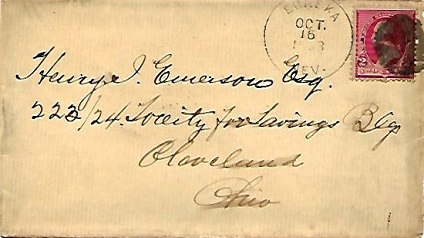 EUREKA
OCT.
16
NEV.
Henry I. Emerson Esq.
222/24. Socity for Savings Bldg
Cleveland
Ohio